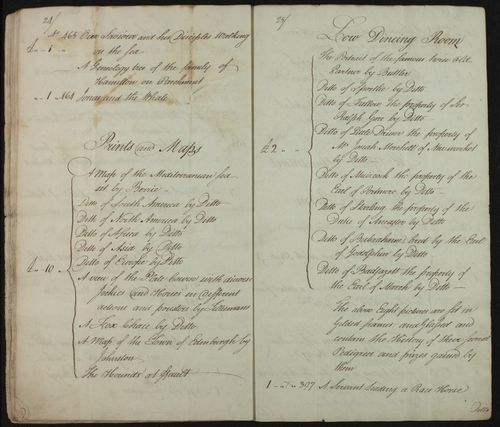 24/
No 463 Our Saviour and his Disciples Walking
on the sea
A Geneology tree of the family of
Hamilton on Parchment
1 464 Jonas and the Whale
Prints and Maps
A Map of the Mediterranean sea
Ditto of South America by Ditto
Ditto of North America by Ditto
Ditto of Africa by Ditto
Ditto of Asia by Ditto
Ditto of Europe by Ditto
£ 10
A view of the Plate Course with diverse
Jockies and Horses in different
actions and postures by
A Fox Chace by Ditto
A Map of the Town of Edinburgh by
Johnston
The Hounds at
25/
Low Dineing Room
The Portrait of the famous
Partner by Butler
Ditto of by Ditto
Ditto of the property of Sr
Ralph Gore by Ditto
Ditto of the property of
Mr Josiah Marshall of Newmarket
by Ditto
Ditto of the property of the
Earl of by Ditto
Ditto of Starling the property of the
Duke of Ancaster by Ditto
Ditto of Babraham bred by the Earl
of Godolphin by Ditto
Ditto of the property of
the Earl of March by Ditto
The above Eight pictures are fit in
Gilded frames and Glassed and
contain the History of these
Pedigrees and prizes gained by
them
1 397 A Servant leading a Race Horse
Ditto